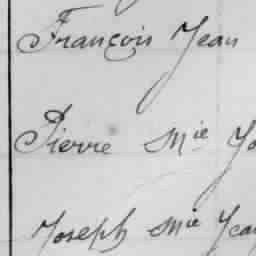 François Jean
Pierre Mie
Joseph Mie Jean